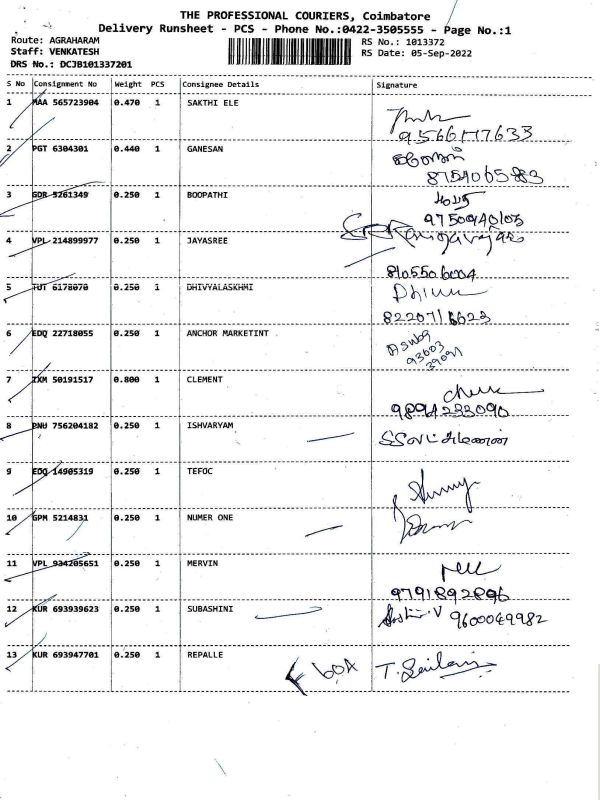 THE PROFESSIONAL COURIERS, Coimbatore
Delivery Runsheet - PCS - Phone No.:0422-3505555 - Page No.:1
Route: AGRAHARAM
Staff: VENKATESH
DRS No.: DCJB101337201
RS No.: 1013372
RS Date: 05-Sep-2022
S No Consignment No Weight PCS Consignee Details Signature
1 MAA 565723904 0.470 1 SAKTHI ELE
9566177633
2 PGT 6304301 0.440 1 GANESAN
8754065983
3 GDR 5261349 0.250 1 BOOPATHI
9750940103
4 VPL 214899977 0.250 1 JAYASREE
8105506004
5 TUT 6178070 0.250 1 DHIVYALASKHMI
6 EDQ 22718055 0.250 1 ANCHOR MARKETINT
93603
39091
7 IXM 50191517 0.800 1 CLEMENT
9894233090
8 PNU 756204182 0.250 1 ISHVARYAM
9 EDQ 14905319 0.250 1 TEFOC
10 GPM 5214831 0.250 1 NUMER ONE
11 VPL 934205651 0.250 1 MERVIN
9791892896
12 KUR 693939623 0.250 1 SUBASHINI
9600049982
13 KUR 693947701 0.250 1 REPALLE
box